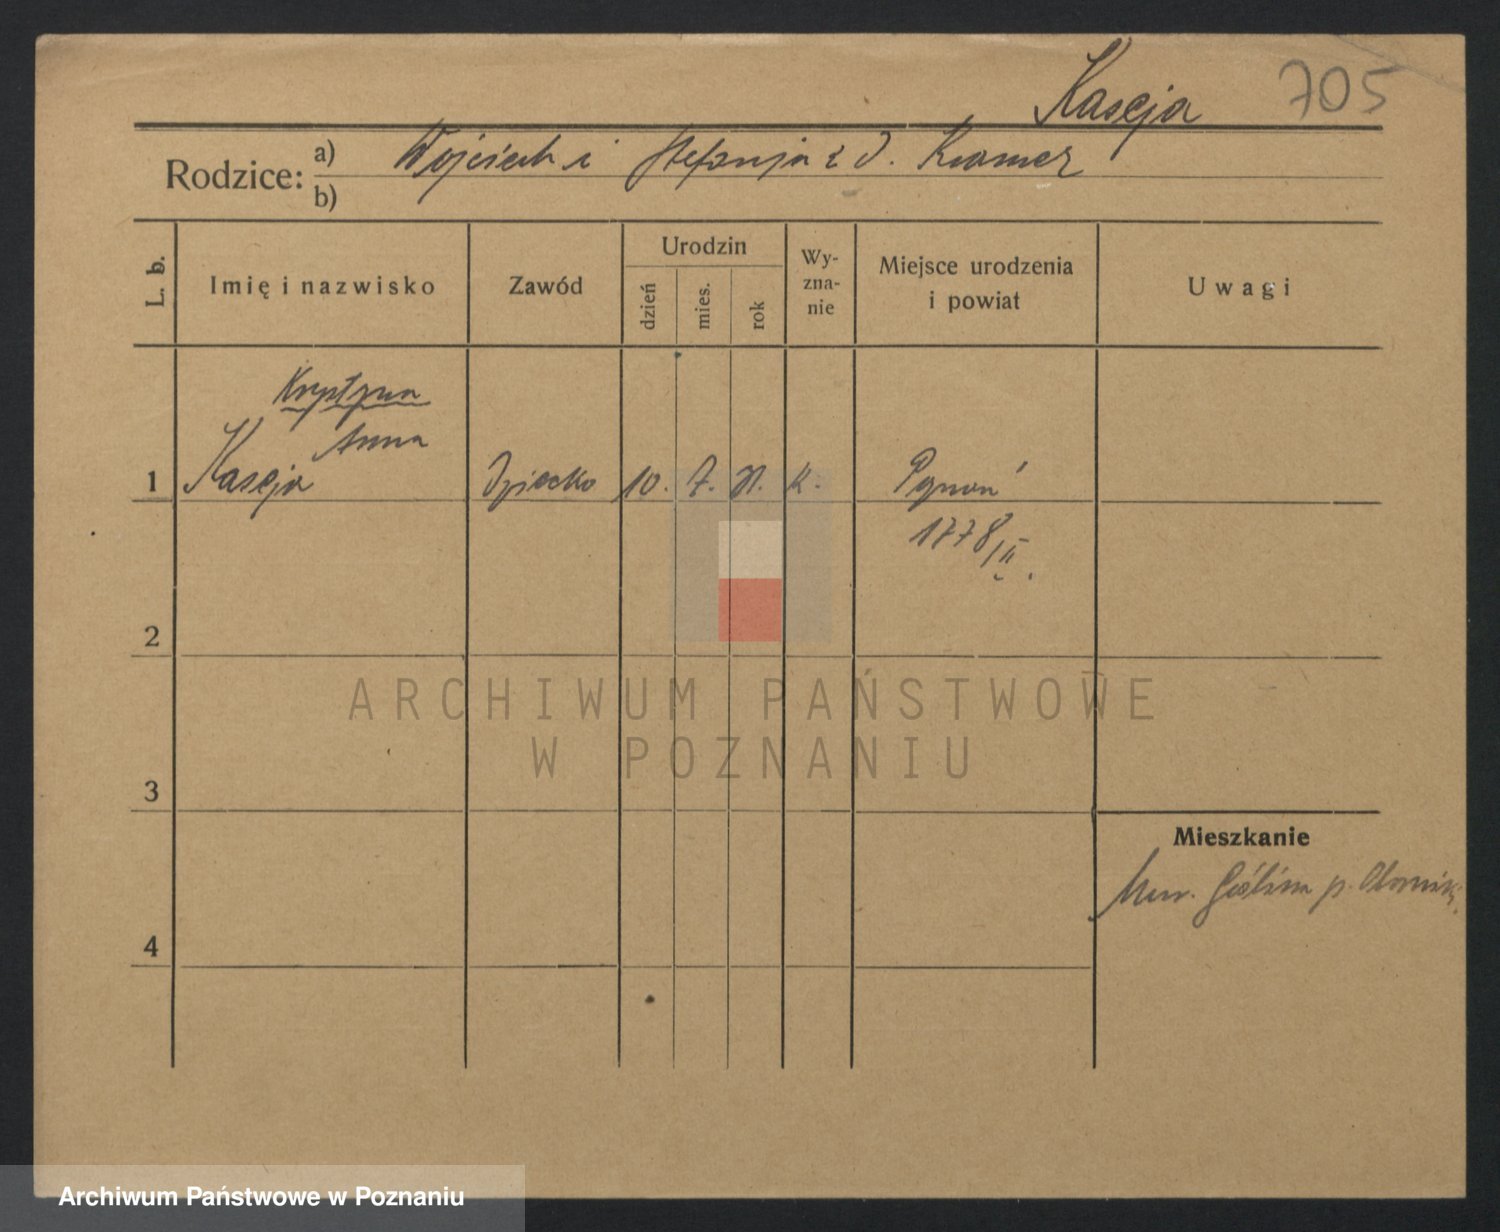 Kaseja 705
Rodzice: a) Wojciech i Stefanja z d. Kramer
b)
L. b. Imię i nazwisko Zawód Urodzin dzień mies. rok Wy-zna-nie Miejsce urodzenia i powiat Uwagi
Krystyna
Anna
1 Kaseja Dziecko 10. 7. 31. k. Poznań
1778/II.
2
ARCHIWUM PAŃSTWOWE
W POZNANIU
3
Mieszkanie
Mur. Goślina p. Oborniki
4
Archiwum Państwowe w Poznaniu